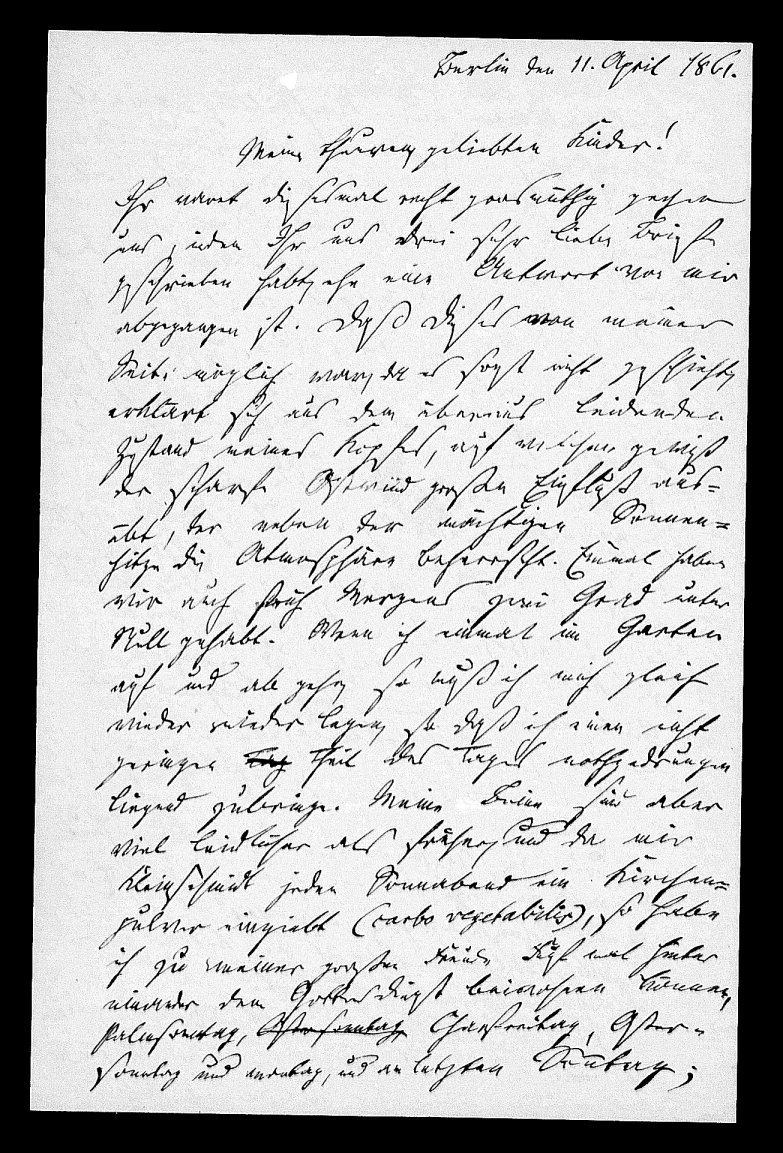 Berlin den 11. April 1861.
Meine theuren, geliebten Kinder!
Ihr waret diesesmal recht grosmüthig gegen
uns, indem Ihr uns drei sehr liebe Briefe
geschrieben habt, ehe eine Antwort von mir
abgegangen ist. Daß dieses von meiner
Seite möglich war, da es sonst nicht geschieht,
erklärt sich aus dem überaus leidenden
Zustand meines Kopfes, auf welchen gewiß
der scharfe Ostwind großen Einfluß aus=
übt, der neben der mächtigen Sonnen=
hitze die Atmosphäre beherrscht. Einmal haben
wir auch früh Morgens zwei Grad unter
Null gehabt. Wenn ich einmal im Garten
auf und ab gehe, so muß ich mich gleich
wieder nieder legen, so daß ich einen nicht
geringen Tag Theil des Tages nothgedrungen
liegend zubringe. Meine Beine sind aber
viel leidlicher als früher, und da mir
Kleinschmidt jeden Sonnabend ein Kirchen=
pulver eingiebt (carbo vegetabilis), so habe
ich zu meiner großen Freude fünf mal hinter
einander dem Gottesdienst beiwohnen können,
Palmsonntag, Ostersonntag, Charfreitag, Oster=
sonntag und montag, und am letzten Sonntag;